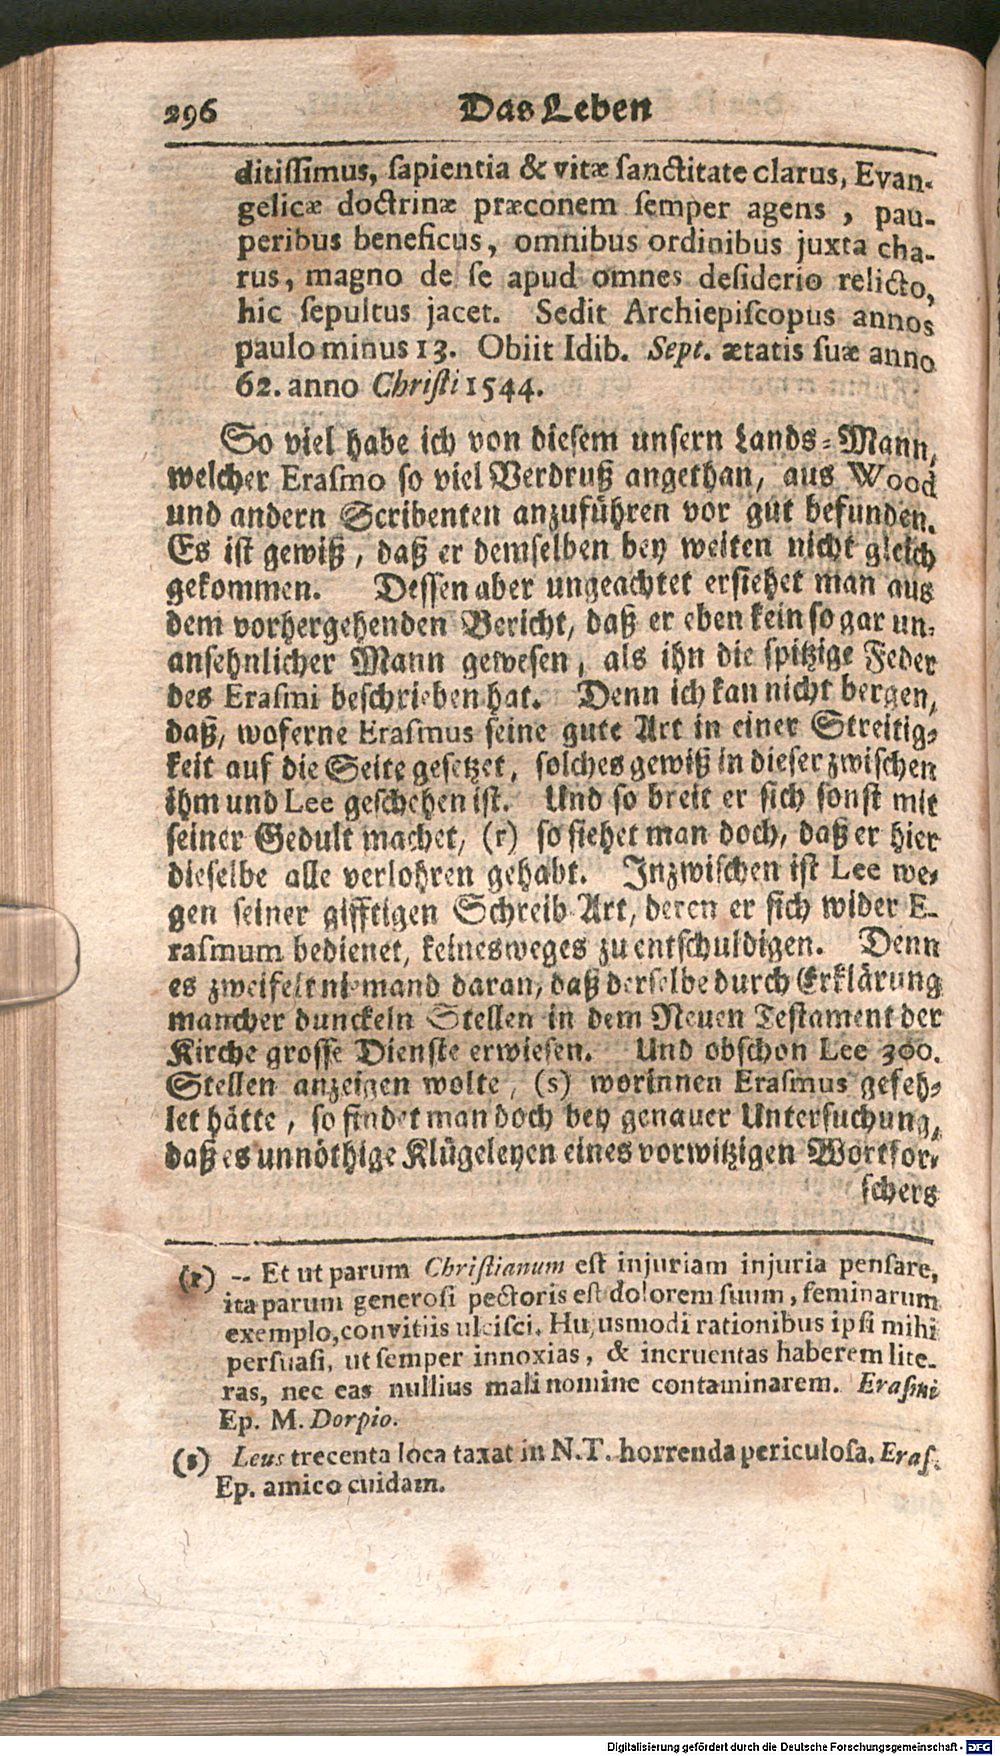 296 Das Leben
ditissimus, sapientia & vitæ sanctitate clarus, Evan-
gelicæ doctrinæ præconem semper agens, pau-
peribus beneficus, omnibus ordinibus juxta cha-
rus, magno de se apud omnes desiderio relicto,
hic sepultus jacet. Sedit Archiepiscopus annos
paulo minus 13. Obiit Idib. Sept. ætatis suæ anno
62. anno Christi 1544.
So viel habe ich von diesem unsern Lands-Mann,
welcher Erasmo so viel Verdruß angethan, aus Wood
und andern Scribenten anzuführen vor gut befunden.
Es ist gewiß, daß er demselben bey weiten nicht gleich
gekommen. Dessen aber ungeachtet ersiehet man aus
dem vorhergehenden Bericht, daß er eben kein so gar un-
ansehnlicher Mann gewesen, als ihn die spitzige Feder
des Erasmi beschrieben hat. Denn ich kan nicht bergen,
daß, woferne Erasmus seine gute Art in einer Streitig-
keit auf die Seite gesetzet, solches gewiß in dieser zwischen
ihm und Lee geschehen ist. Und so breit er sich sonst mit
seiner Gedult machet, (r) so siehet man doch, daß er hier
dieselbe alle verlohren gehabt. Inzwischen ist Lee we-
gen seiner gifftigen Schreib-Art, deren er sich wider E-
rasmum bedienet, keinesweges zu entschuldigen. Denn
es zweifelt niemand daran, daß derselbe durch Erklärung
mancher dunckeln Stellen in dem Neuen Testament der
Kirche grosse Dienste erwiesen. Und obschon Lee 300.
Stellen anzeigen wolte, (s) worinnen Erasmus gefeh-
let hätte, so findet man doch bey genauer Untersuchung,
daß es unnöthige Klügeleyen eines vorwitzigen Wortfor-
schers
(r) -- Et ut parum Christianum est injuriam injuria pensare,
ita parum generosi pectoris est dolorem suum, feminarum
exemplo, convitiis ulcisci. Hujusmodi rationibus ipsi mihi
persuasi, ut semper innoxias, & incruentas haberem lite-
ras, nec eas nullius mali nomine contaminarem. Erasmi
Ep. M. Dorpio.
(s) Leus trecenta loca taxat in N.T. horrenda periculosa. Eras.
Ep. amico cuidam.
Digitalisierung gefördert durch die Deutsche Forschungsgemeinschaft - DFG